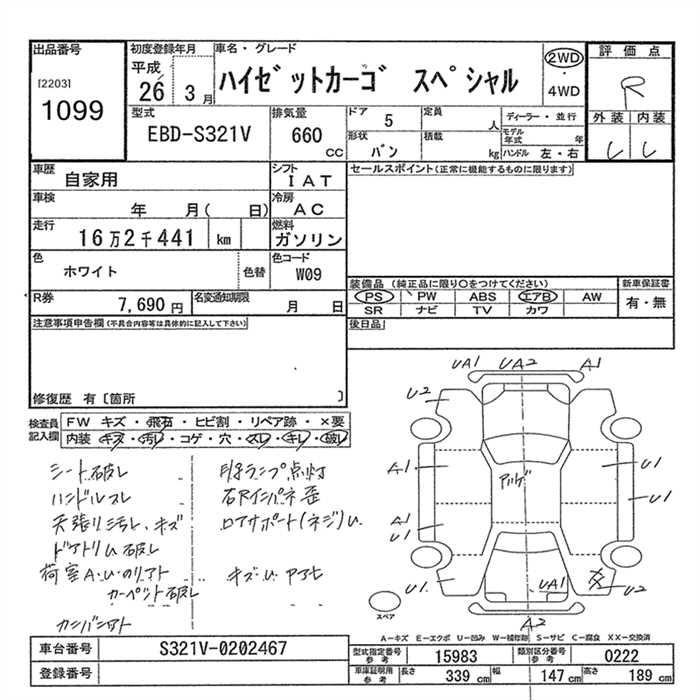 出品番号
[2203]
1099
初度登録年月
平成
26 3月
車名・グレード
ハイゼットカーゴ スペシャル
2WD
・
4WD
評価点
R
外装 内装
型式
EBD-S321V
排気量
660 CC
ドア 5
形状 バン
定員 人
積載 kg
ディーラー・並行
モデル年式 年
ハンドル 左・右
車歴
自家用
シフト
IAT
車検
年 月( 日)
冷房
AC
走行
16万2千441 km
燃料
ガソリン
色
ホワイト
色替
色コード
W09
R券
7,690円
名変通知期限
月 日
セールスポイント(正常に機能するものに限ります)
装備品(純正品に限り○をつけてください)
PS PW ABS エアB AW
SR ナビ TV カワ
新車保証書
有・無
後日品
注意事項申告欄(不具合内容等は具体的に記入して下さい)
修復歴 有[箇所 ]
検査員記入欄
FW キズ・飛石・ヒビ割・リペア跡・×要
内装・キズ・汚レ・コゲ・穴・スレ・キレ・破レ
シート破レ
ハンドルスレ
天張り汚レ、キズ
ドアトリム破レ
荷室A.U.のリアト
カーペント破レ
点灯
右Rインパネ歪
ロアサポート(ネジ)U.
キズ.U.
UA1 UA2 A1
U2
A1 U1
U1
A1
U1
U1
UA1
U2
A2
スペア
A−キズ E−エクボ U−凹み W−補修跡 S−サビ C−腐食 XX−交換済
車台番号
S321V-0202467
登録番号
型式指定番号 参考
15983
類別区分番号 参考
0222
車庫証明用 参考
長さ 339 cm
幅 147 cm
高さ 189 cm